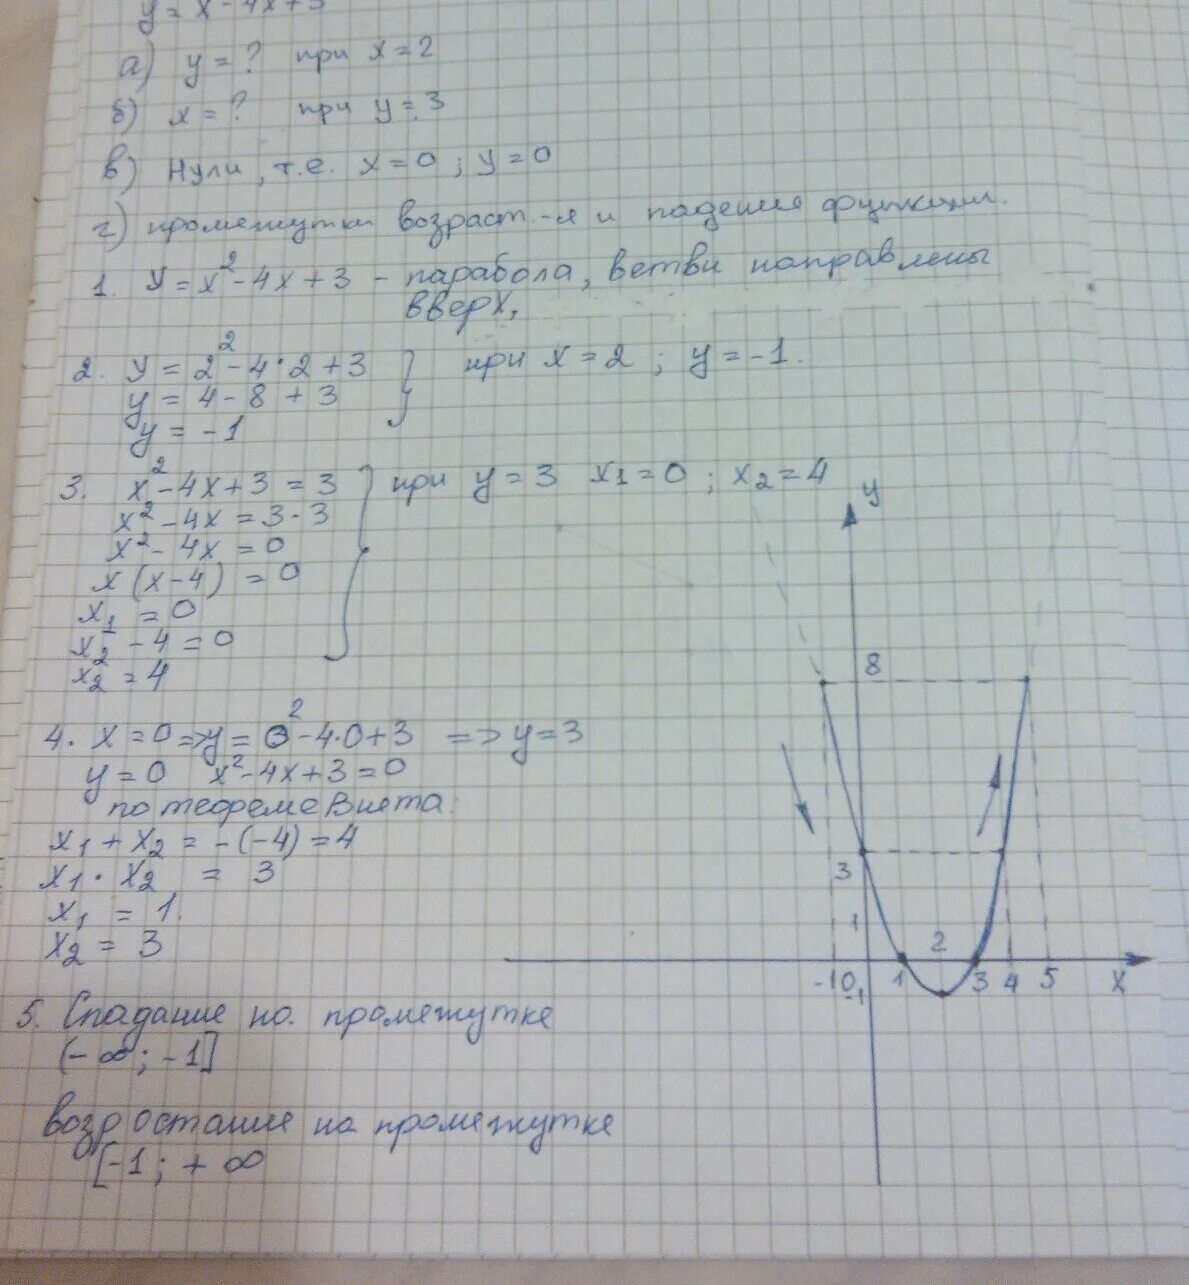 y = x² - 4x + 3
а) y = ? при x = 2
б) x = ? при y = 3
в) Нули, т.е. x = 0 ; y = 0
г) промежутки возраст.-я и падения функции.
1. y = x² - 4x + 3 - парабола, ветви направлены
вверх,
2. y = 2² - 4·2 + 3 } при x = 2 ; y = -1.
y = 4 - 8 + 3
y = -1
3. x² - 4x + 3 = 3 } при y = 3 x₁ = 0 ; x₂ = 4
x² - 4x = 3 - 3
x² - 4x = 0
x (x - 4) = 0
x₁ = 0
x₂ - 4 = 0
x₂ = 4
4. x = 0 => y = 0² - 4·0 + 3 => y = 3
y = 0 x² - 4x + 3 = 0
по теореме Виета:
x₁ + x₂ = -(-4) = 4
x₁ · x₂ = 3
x₁ = 1
x₂ = 3
5. Спадание на промежутке
(-∞; -1]
возростание на промежутке
[-1; +∞
y
8
3
1
2
-1 0 1 3 4 5 x
-1